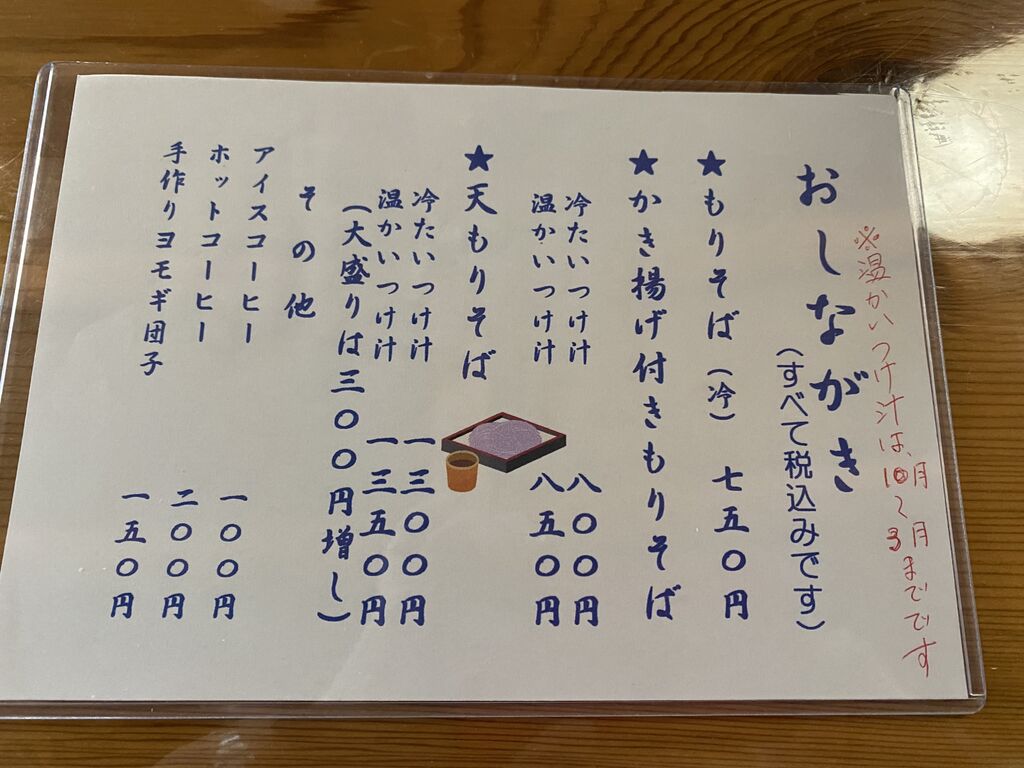 ※温かいつけ汁は、10月～3月までです
おしながき
(すべて税込みです)
★もりそば(冷) 七五〇円
★かき揚げ付きもりそば
冷たいつけ汁 八〇〇円
温かいつけ汁 八五〇円
★天もりそば
冷たいつけ汁 一三〇〇円
温かいつけ汁 一三五〇円
(大盛りは三〇〇円増し)
その他
アイスコーヒー 一〇〇円
ホットコーヒー 二〇〇円
手作りヨモギ団子 一五〇円